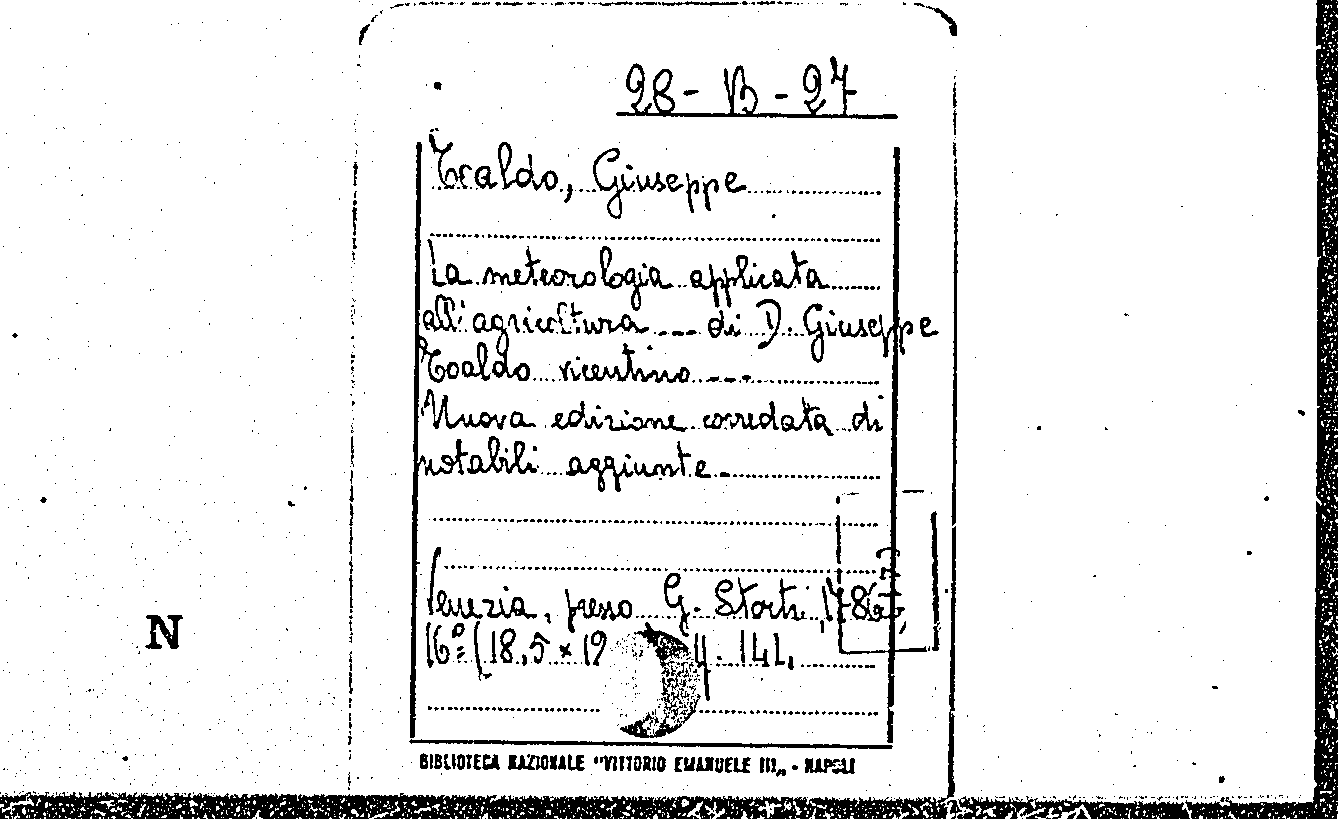 28 - B - 27
Traldo, Giuseppe
La meteorologia applicata
all'agricoltura --- di D. Giuseppe
Toaldo vicentino ---
Nuova edizione corredata di
notabili aggiunte.
Venezia, presso G. Storti, 1786,
N
16º (18,5 × 12 141.
BIBLIOTECA NAZIONALE "VITTORIO EMANUELE III" - NAPOLI